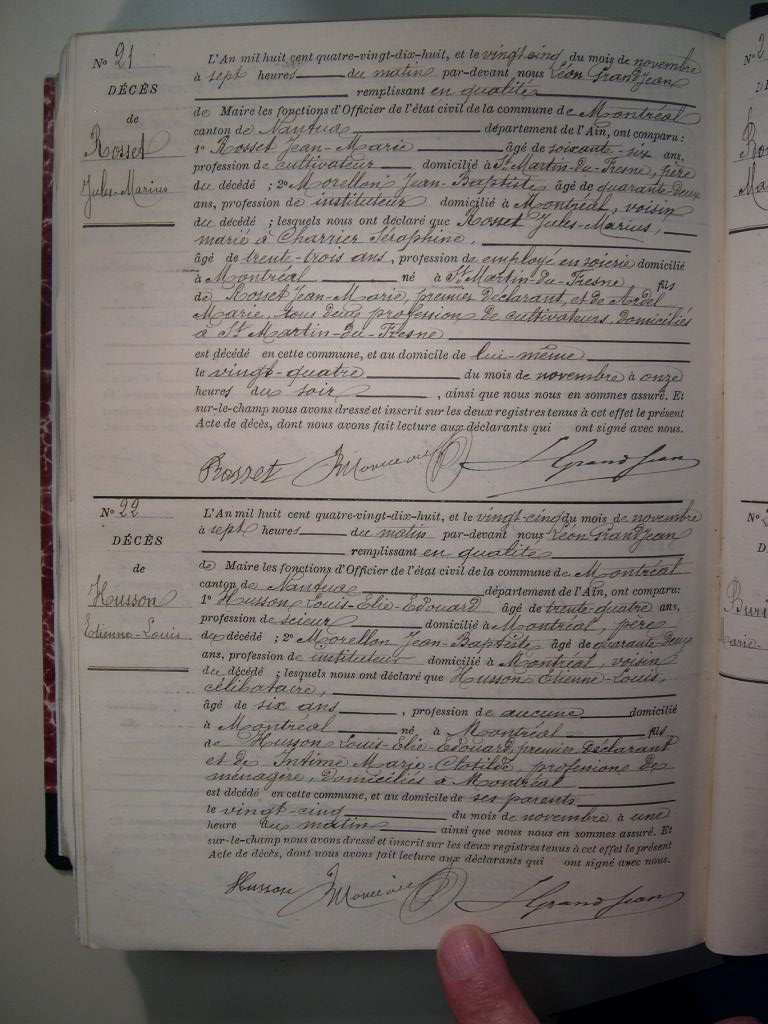 N° 21
DÉCÈS
de
Rosset
Jules-Marius
L'An mil huit cent quatre-vingt-dix-huit, et le vingt-cinq du mois de novembre
à sept heures du matin par-devant nous Léon Grandjean
remplissant en qualité
de Maire les fonctions d'Officier de l'état civil de la commune de Montréal
canton de Nantua département de l'Ain, ont comparu :
1° Rosset Jean-Marie âgé de soixante-six ans,
profession de cultivateur domicilié à St Martin-du-Fresne, père
du décédé ; 2° Morellon Jean-Baptiste âgé de quarante-deux
ans, profession de instituteur domicilié à Montréal, voisin
du décédé ; lesquels nous ont déclaré que Rosset Jules-Marius,
marié à Charrier Séraphine,
âgé de trente-trois ans, profession de employé en soierie domicilié
à Montréal né à St Martin-du-Fresne fils
de Rosset Jean-Marie, premier déclarant, et de Ardel
Marie, tous deux profession de cultivateurs, domiciliés
à St Martin-du-Fresne
est décédé en cette commune, et au domicile de lui-même
le vingt-quatre du mois de novembre à onze
heures du soir, ainsi que nous nous en sommes assuré. Et
sur-le-champ nous avons dressé et inscrit sur les deux registres tenus à cet effet le présent
Acte de décès, dont nous avons fait lecture aux déclarants qui ont signé avec nous.
Rosset L Grandjean
N° 22
DÉCÈS
de
Husson
Etienne-Louis
L'An mil huit cent quatre-vingt-dix-huit, et le vingt-cinq du mois de novembre
à sept heures du matin par-devant nous Léon Grandjean
remplissant en qualité
de Maire les fonctions d'Officier de l'état civil de la commune de Montréal
canton de Nantua département de l'Ain, ont comparu :
1° Husson Louis-Elie-Edouard âgé de trente-quatre ans,
profession de scieur domicilié à Montréal, père
du décédé ; 2° Morellon Jean-Baptiste âgé de quarante-deux
ans, profession de instituteur domicilié à Montréal, voisin
du décédé ; lesquels nous ont déclaré que Husson Etienne-Louis,
célibataire,
âgé de six ans, profession de aucune domicilié
à Montréal né à Montréal fils
de Husson Louis-Elie-Edouard, premier déclarant
et de Intime Marie-Clotilde, profession de
ménagère, domiciliés à Montréal
est décédé en cette commune, et au domicile de ses parents
le vingt-cinq du mois de novembre à une
heure du matin ainsi que nous nous en sommes assuré. Et
sur-le-champ nous avons dressé et inscrit sur les deux registres tenus à cet effet le présent
Acte de décès, dont nous avons fait lecture aux déclarants qui ont signé avec nous.
Husson L Grandjean